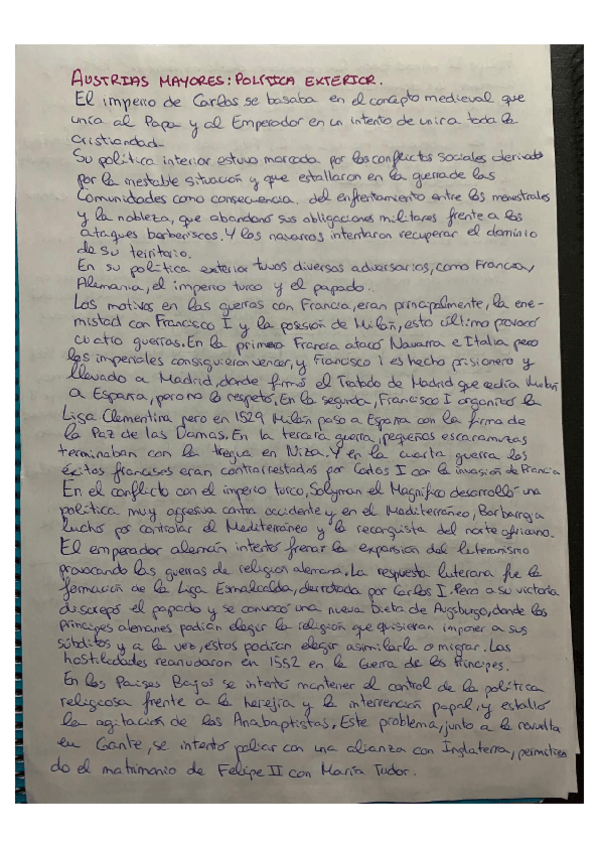 AUSTRIAS MAYORES: POLÍTICA EXTERIOR.
El imperio de Carlos se basaba en el concepto medieval que
unía al Papa y al Emperador en un intento de unir a toda la
cristiandad.
Su política interior estuvo marcada por los conflictos sociales derivados
por la inestable situación y que estallaron en la guerra de las
Comunidades como consecuencia. del enfrentamiento entre los menestrales
y la nobleza, que abandonó sus obligaciones militares frente a los
ataques barberiscos. Y los navarros intentaron recuperar el dominio
de su territorio.
En su política exterior tuvos diversos adversarios, como Francia,
Alemania, el imperio turco y el papado..
Los motivos en las guerras con Francia, eran principalmente, la ene-
mistad con Francisco I y la posesión de Milán, esto último provocó
cuatro guerras. En la primera Francia atacó Navarra e Italia pero
los imperiales consiguieron vencer, y Francisco I es hecho prisionero y
llevado a Madrid, donde firmó el Tratado de Madrid que cedía Milán
a España, pero no lo respetó. En la segunda, Francisco I organizó la
Liga Clementina pero en 1529 Milán pasó a España con la firma de
la Paz de las Damas. En la tercera guerra, pequeñas escaramuzas
terminaban con la tregua en Niza. Y en la cuarta guerra los
éxitos franceses eran contrarrestados por Carlos I con la invasión de Francia
En el conflicto con el imperio turco, Solyman el Magnífico desarrolló una
política muy agresiva contra occidente y en el Mediterráneo, Barbarroja
luchó por controlar el Mediterráneo y la reconquista del norte africano.
El emperador alemán intentó frenar la expansión del luteranismo
provocando las guerras de religión alemana. La respuesta luterana fue la
formación de la Liga Esmalcalda, derrotada por Carlos I. Pero a su victoria
discrepó el papado y se convocó una nueva Dieta de Augsburgo, donde los
príncipes alemanes podían elegir la religión que quisieran imponer a sus
súbditos y a la vez, estos podían elegir asimilarla o migrar. Las
hostilidades reanudaron en 1552 en la Guerra de los Príncipes.
En los Países Bajos se intentó mantener el control de la política
religiosa frente a la herejía y la intervención papal, y estalló
la agitación de los Anabaptistas. Este problema, junto a la revuelta
en Gante, se intentó paliar con una alianza con Inglaterra, permitien
do el matrimonio de Felipe II con María Tudor.